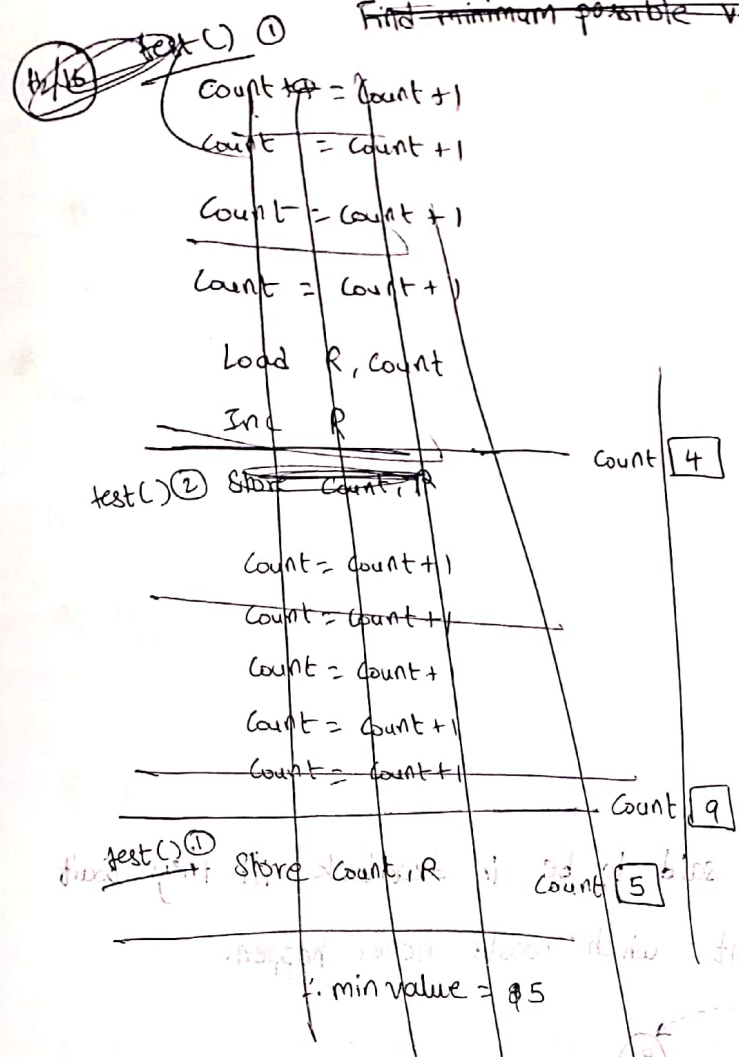 Find minimum possible v
test() ①
Count = Count + 1
Count = Count + 1
Count = Count + 1
Count = Count + 1
Load R, Count
Inc R
Count 4
test() ② Store Count, R
Count = Count + 1
Count = Count + 1
Count = Count +
Count = Count + 1
Count = Count + 1
Count 9
test() ① Store Count, R Count 5
∴ min value = 5